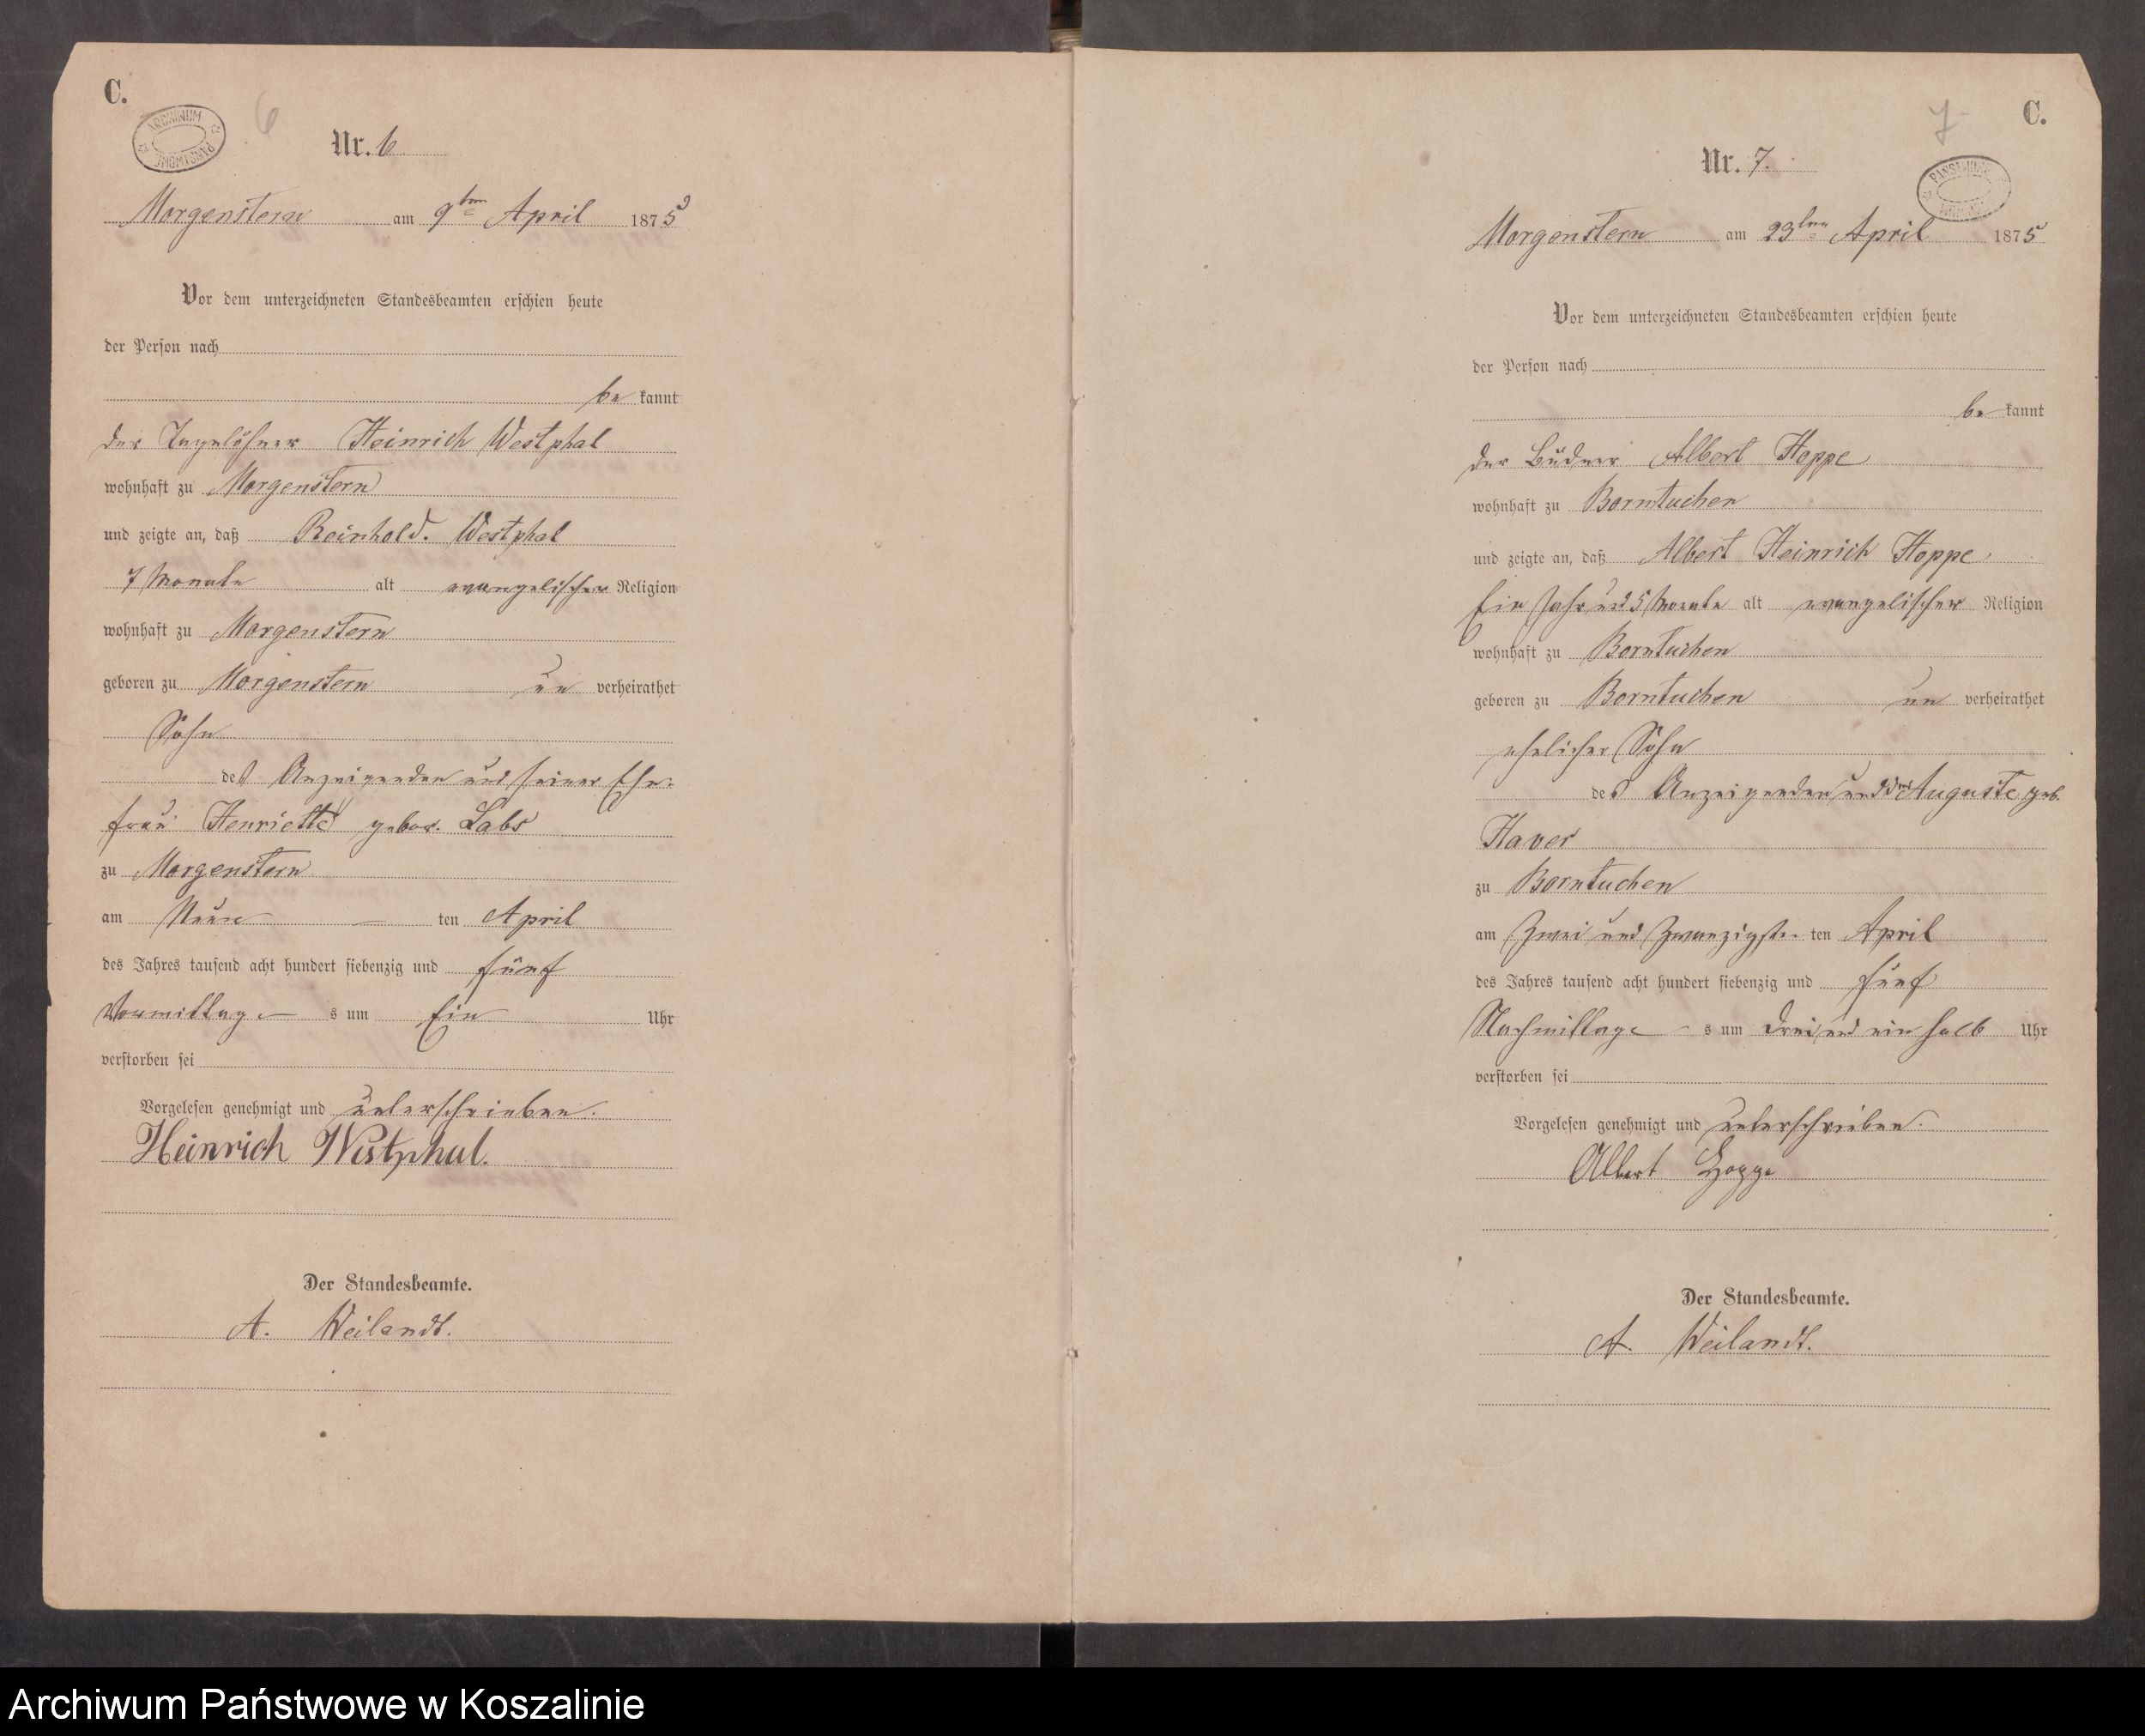 C.
ARCHIWUM PAŃSTWOWE
6
Nr. 6
Morgenstern am 9ten April 1875
Vor dem unterzeichneten Standesbeamten erschien heute
der Person nach
be kannt
der Tagelöhner Heinrich Westphal
wohnhaft zu Morgenstern
und zeigte an, daß Reinhold. Westphal
7 Monate alt evangelischer Religion
wohnhaft zu Morgenstern
geboren zu Morgenstern un verheirathet
Sohn
des Anzeigenden und seiner Ehe-
frau Henriette gebor. Labs
zu Morgenstern
am Neun ten April
des Jahres tausend acht hundert siebenzig und fünf
Vormittag s um Ein Uhr
verstorben sei
Vorgelesen genehmigt und unterschrieben.
Heinrich Westphal.
Der Standesbeamte.
A. Weilandt.
7
C.
Nr. 7.
Morgenstern am 23ten April 1875
Vor dem unterzeichneten Standesbeamten erschien heute
der Person nach
be kannt
der Büdner Albert Hoppe
wohnhaft zu Borntuchen
und zeigte an, daß Albert Heinrich Hoppe
Ein Jahr und 5 Monate alt evangelischer Religion
wohnhaft zu Borntuchen
geboren zu Borntuchen un verheirathet
ehelicher Sohn
des Anzeigenden und der Auguste geb.
Haver
zu Borntuchen
am Zwei und Zwanzigsten ten April
des Jahres tausend acht hundert siebenzig und fünf
Nachmittag s um Drei und ein halb Uhr
verstorben sei
Vorgelesen genehmigt und unterschrieben.
Albert Hoppe
Der Standesbeamte.
A. Weilandt.
Archiwum Państwowe w Koszalinie